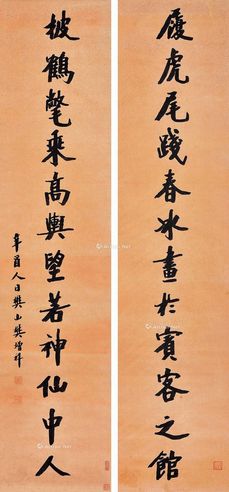 履虎尾踐春冰畫於賓客之館
披鶴氅乘高輿望若神仙中人
辛酉人日樊山樊增祥